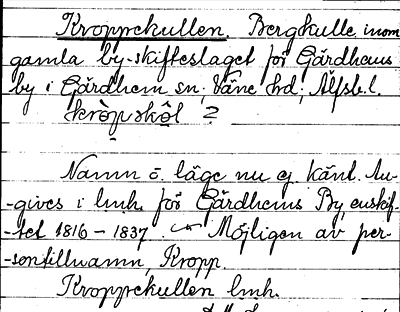 Kroppekullen. Bergkulle inom
gamla by-skifteslaget för Gärdhems
by i Gärdhem sn; Väne hd; Älfsb. l.
kròpsko̤l ?
Namn o. läge nu ej känt. An-
-gives i lmh. för Gärdhems By, enskif-
-tet 1816 – 1837. Möjligen av per-
-sontillnamn, Kropp.
Kroppekullen lmh.